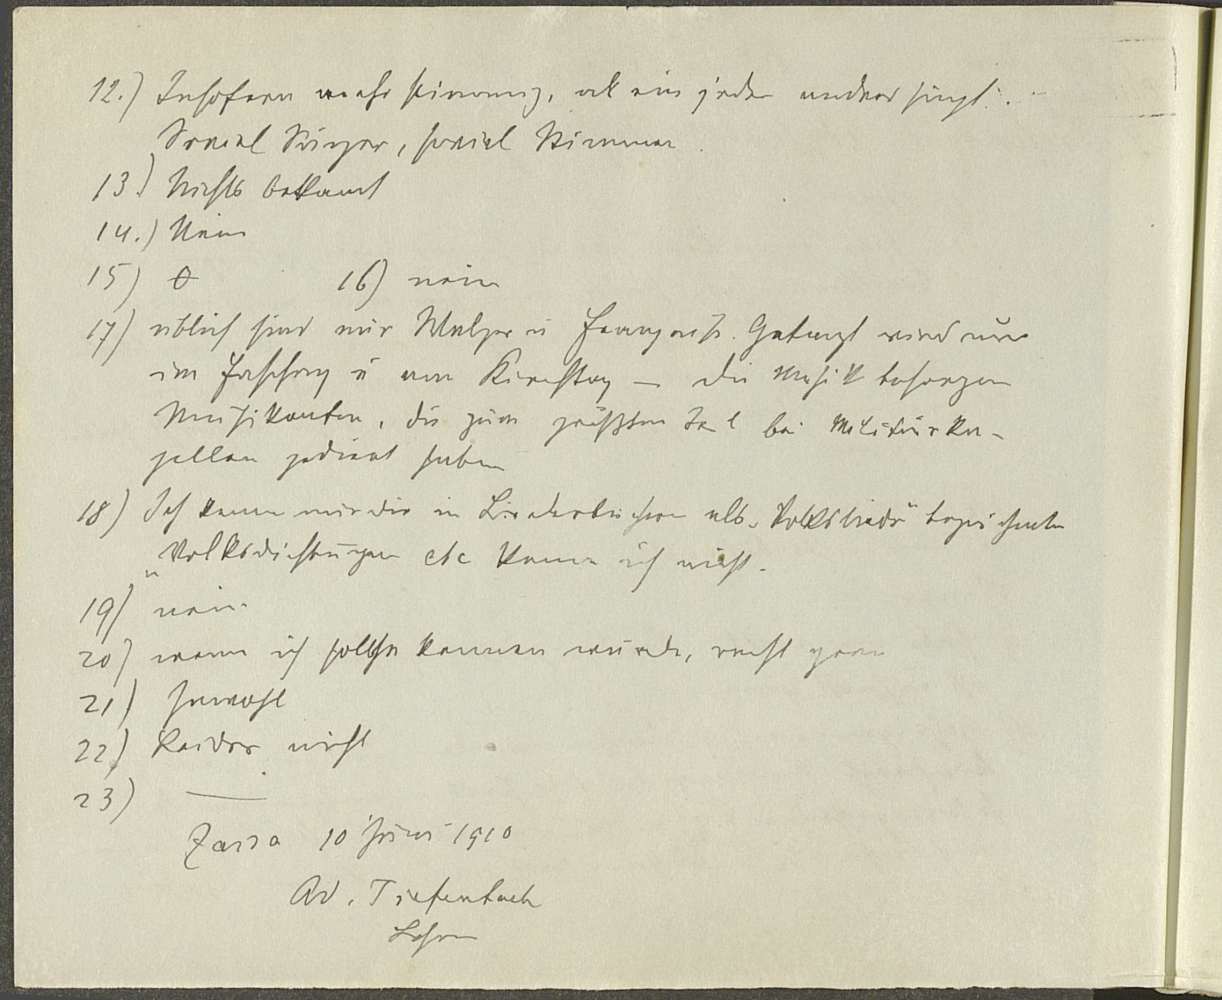 12.) Insofern mehrstimmig, als ein jeder anders singt.
Soviel Sänger, soviel Stimmen.
13.) Nichts bekannt
14.) Nein
15) 0 16) nein
17) üblich sind nur Walzer u Française. Getanzt wird nur
im Fasching u am Kirchtag — die Musik besorgen
Musikanten, die zum größten Teil bei Militärka-
pellen gedient haben
18) Ich kenne nur die in Liederbüchern als „Volkslieder" bezeichneten
Volksdichtungen etc kenne ich nicht.
19) nein.
20) wenn ich solche kennen würde, recht gern
21) Jawohl
22) Leider nicht
23) —
10 Juni 1910
Ad. Tiefenbach